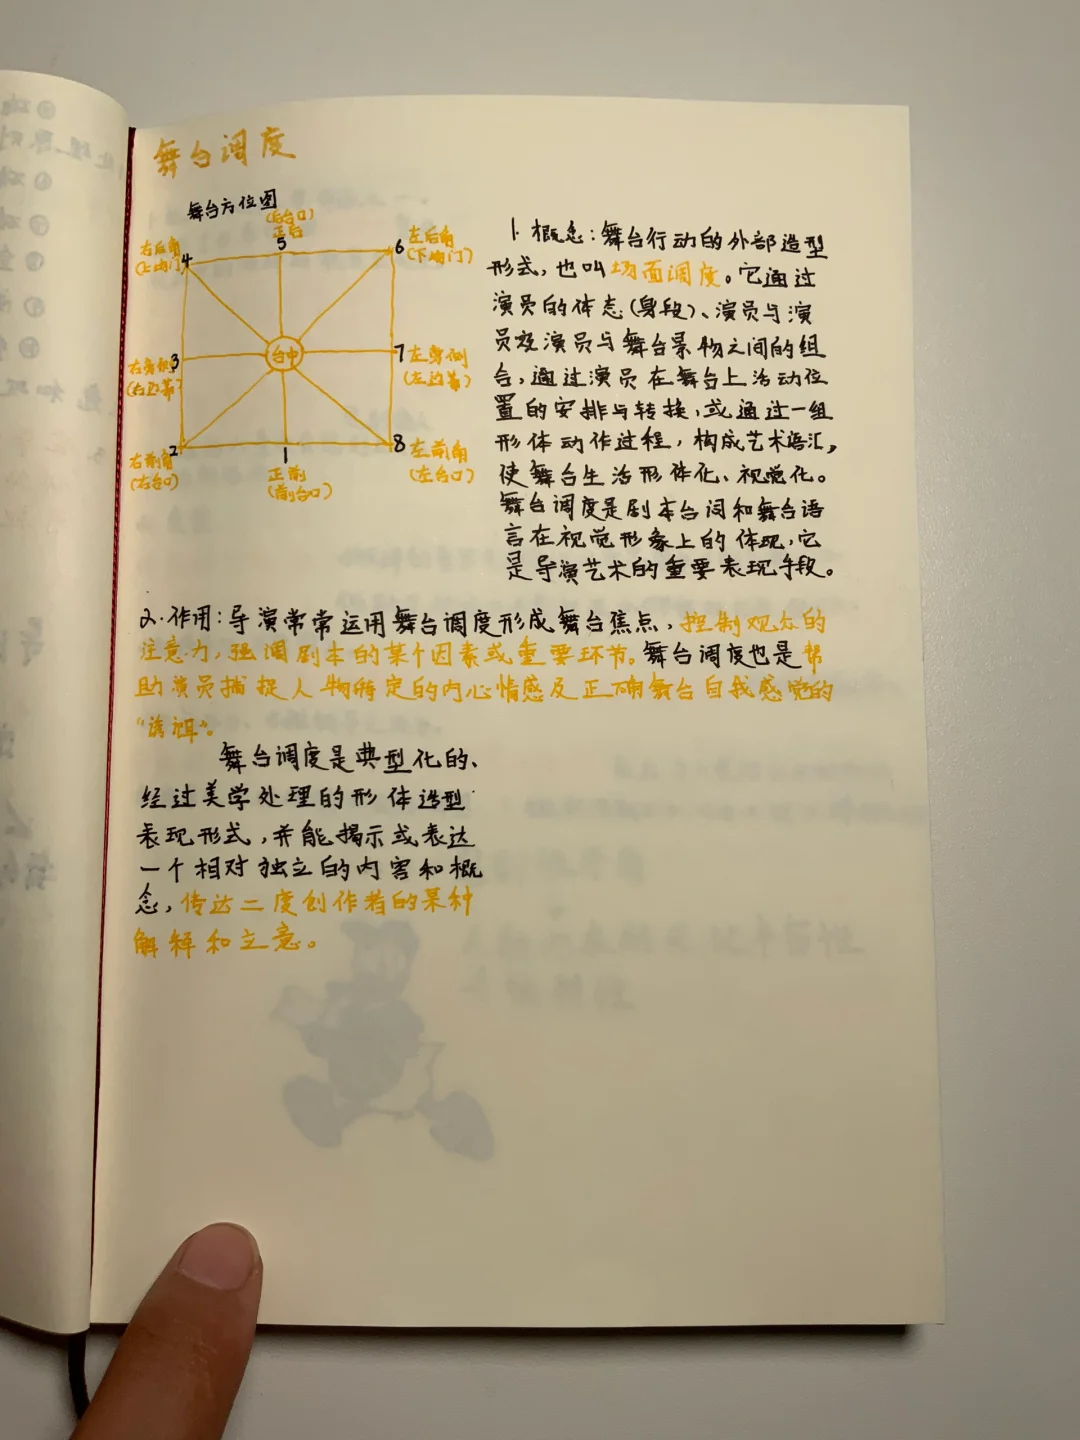 舞台调度
舞台方位图
(后台口)
正后
5
右后角
(上场门)
4
6
左后角
(下场门)
台中
3
7
左旁侧
(左边幕)
(右边幕)
2
右前角
(右台口)
1
正前
(前台口)
8
左前角
(左台口)
1.概念:舞台行动的外部造型
形式,也叫场面调度。它通过
演员的体态(身段)、演员与演
员及演员与舞台景物之间的组
合,通过演员在舞台上活动位
置的安排与转换,或通过一组
形体动作过程,构成艺术语汇,
使舞台生活形体化、视觉化。
舞台调度是剧本台词和舞台语
言在视觉形象上的体现,它
是导演艺术的重要表现手段。
2.作用:导演常常运用舞台调度形成舞台焦点,控制观众的
注意力,强调剧本的某个因素或重要环节。舞台调度也是帮
助演员捕捉人物特定的内心情感及正确舞台自我感觉的
“诱饵”。
舞台调度是典型化的、
经过美学处理的形体造型
表现形式,并能揭示或表达
一个相对独立的内容和概
念,传达二度创作者的某种
解释和立意。